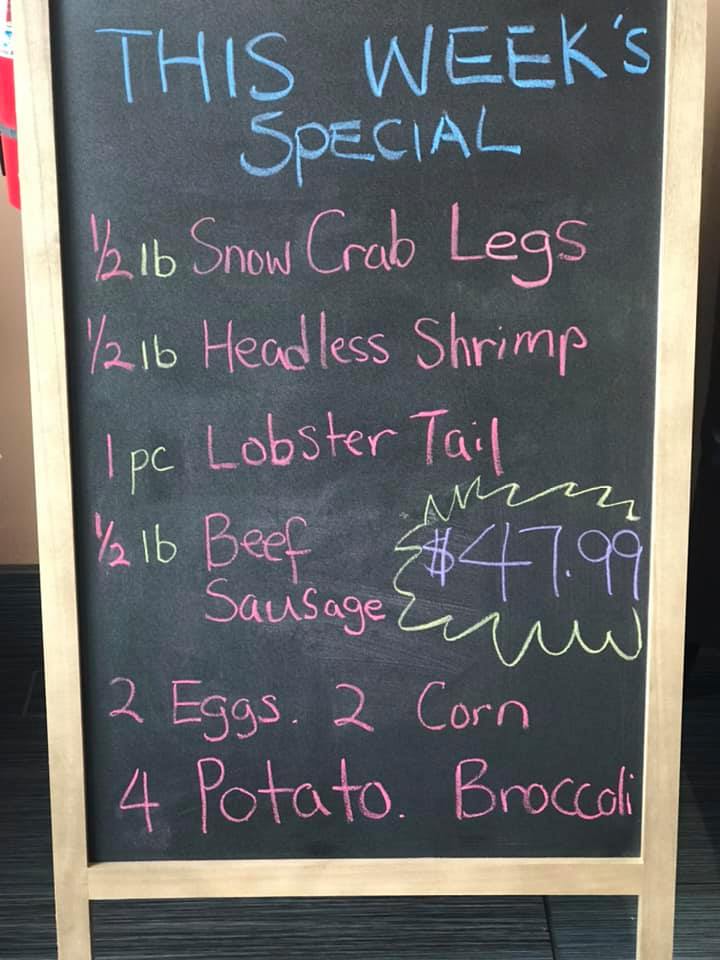 THIS WEEK'S
SPECIAL
1/2 lb Snow Crab Legs
1/2 lb Headless Shrimp
1 pc Lobster Tail
1/2 lb Beef
Sausage
$47.99
2 Eggs. 2 Corn
4 Potato. Broccoli